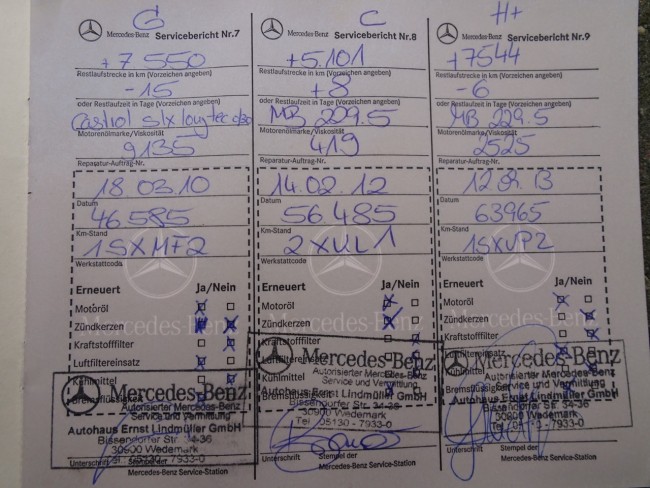 G
Mercedes-Benz Servicebericht Nr.7
+7550
Restlaufstrecke in km (Vorzeichen angeben)
-15
oder Restlaufzeit in Tage (Vorzeichen angeben)
Castrol slx longtec
Motorenölmarke/Viskosität
9135
Reparatur-Auftrag-Nr.
18.03.10
Datum
46.585
Km-Stand
1SXMF2
Werkstattcode
Erneuert Ja/Nein
Motoröl
Zündkerzen
Kraftstofffilter
Luftfiltereinsatz
Kühlmittel
Bremsflüssigkeit
Mercedes-Benz
Mercedes-Benz
Autorisierter Mercedes-Benz
Service und Vermittlung
Autohaus Ernst Lindmüller GmbH
Bissendorfer Str. 34-36
30900 Wedemark
Tel. 05130 - 7933-0
Unterschrift Stempel der
Mercedes-Benz Service-Station
C
Mercedes-Benz Servicebericht Nr.8
+5.101
Restlaufstrecke in km (Vorzeichen angeben)
+8
oder Restlaufzeit in Tage (Vorzeichen angeben)
MB 229.5
Motorenölmarke/Viskosität
419
Reparatur-Auftrag-Nr.
14.02.12
Datum
56.485
Km-Stand
2XUL1
Werkstattcode
Erneuert Ja/Nein
Motoröl
Zündkerzen
Kraftstofffilter
Luftfiltereinsatz
Kühlmittel
Bremsflüssigkeit
Mercedes-Benz
Mercedes-Benz
Autorisierter Mercedes-Benz
Service und Vermittlung
Autohaus Ernst Lindmüller GmbH
Bissendorfer Str. 34-36
30900 Wedemark
Tel. 05130 - 7933-0
Unterschrift Stempel der
Mercedes-Benz Service-Station
H+
Mercedes-Benz Servicebericht Nr.9
+7544
Restlaufstrecke in km (Vorzeichen angeben)
-6
oder Restlaufzeit in Tage (Vorzeichen angeben)
MB 229.5
Motorenölmarke/Viskosität
2525
Reparatur-Auftrag-Nr.
Datum
63965
Km-Stand
1SXUP2
Werkstattcode
Erneuert Ja/Nein
Motoröl
Zündkerzen
Kraftstofffilter
Luftfiltereinsatz
Kühlmittel
Bremsflüssigkeit
Mercedes-Benz
Mercedes-Benz
Autorisierter Mercedes-Benz
Service und Vermittlung
Autohaus Ernst Lindmüller GmbH
Bissendorfer Str. 34-36
30900 Wedemark
Tel. 05130 - 7933-0
Unterschrift Stempel der
Mercedes-Benz Service-Station